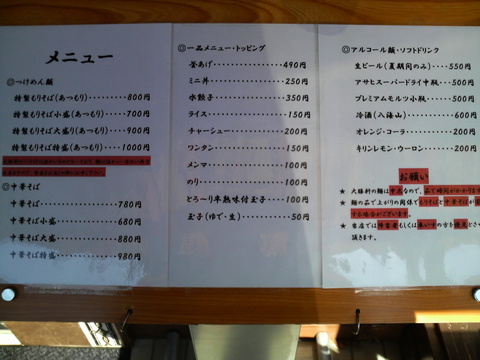 メニュー
◎つけめん類
特製もりそば(あつもり)……800円
特製もりそば小盛(あつもり)……700円
特製もりそば大盛り(あつもり)…900円
特製もりそば特盛(あつもり)……1000円
◎中華そば
中華そば……780円
中華そば小盛……680円
中華そば大盛……880円
中華そば特盛……980円
◎一品メニュー・トッピング
釜あげ……490円
ミニ丼……250円
水餃子……350円
ライス……150円
チャーシュー……200円
ワンタン……150円
メンマ……100円
のり……100円
とろ〜り半熟味付玉子…100円
玉子(ゆで・生)……50円
◎アルコール類・ソフトドリンク
生ビール(夏期間のみ)…550円
アサヒスーパードライ中瓶…500円
プレミアムモルツ小瓶……500円
冷酒(八海山)……600円
オレンジ・コーラ……200円
キリンレモン・ウーロン……200円
お願い
★ 大勝軒の麺は
なので、
★ 麺の茹で上がりの関係で
もりそばと中華そばが
する場合がございます。
★ 当店では
もしくは
の方を優先とさせて
頂きます。